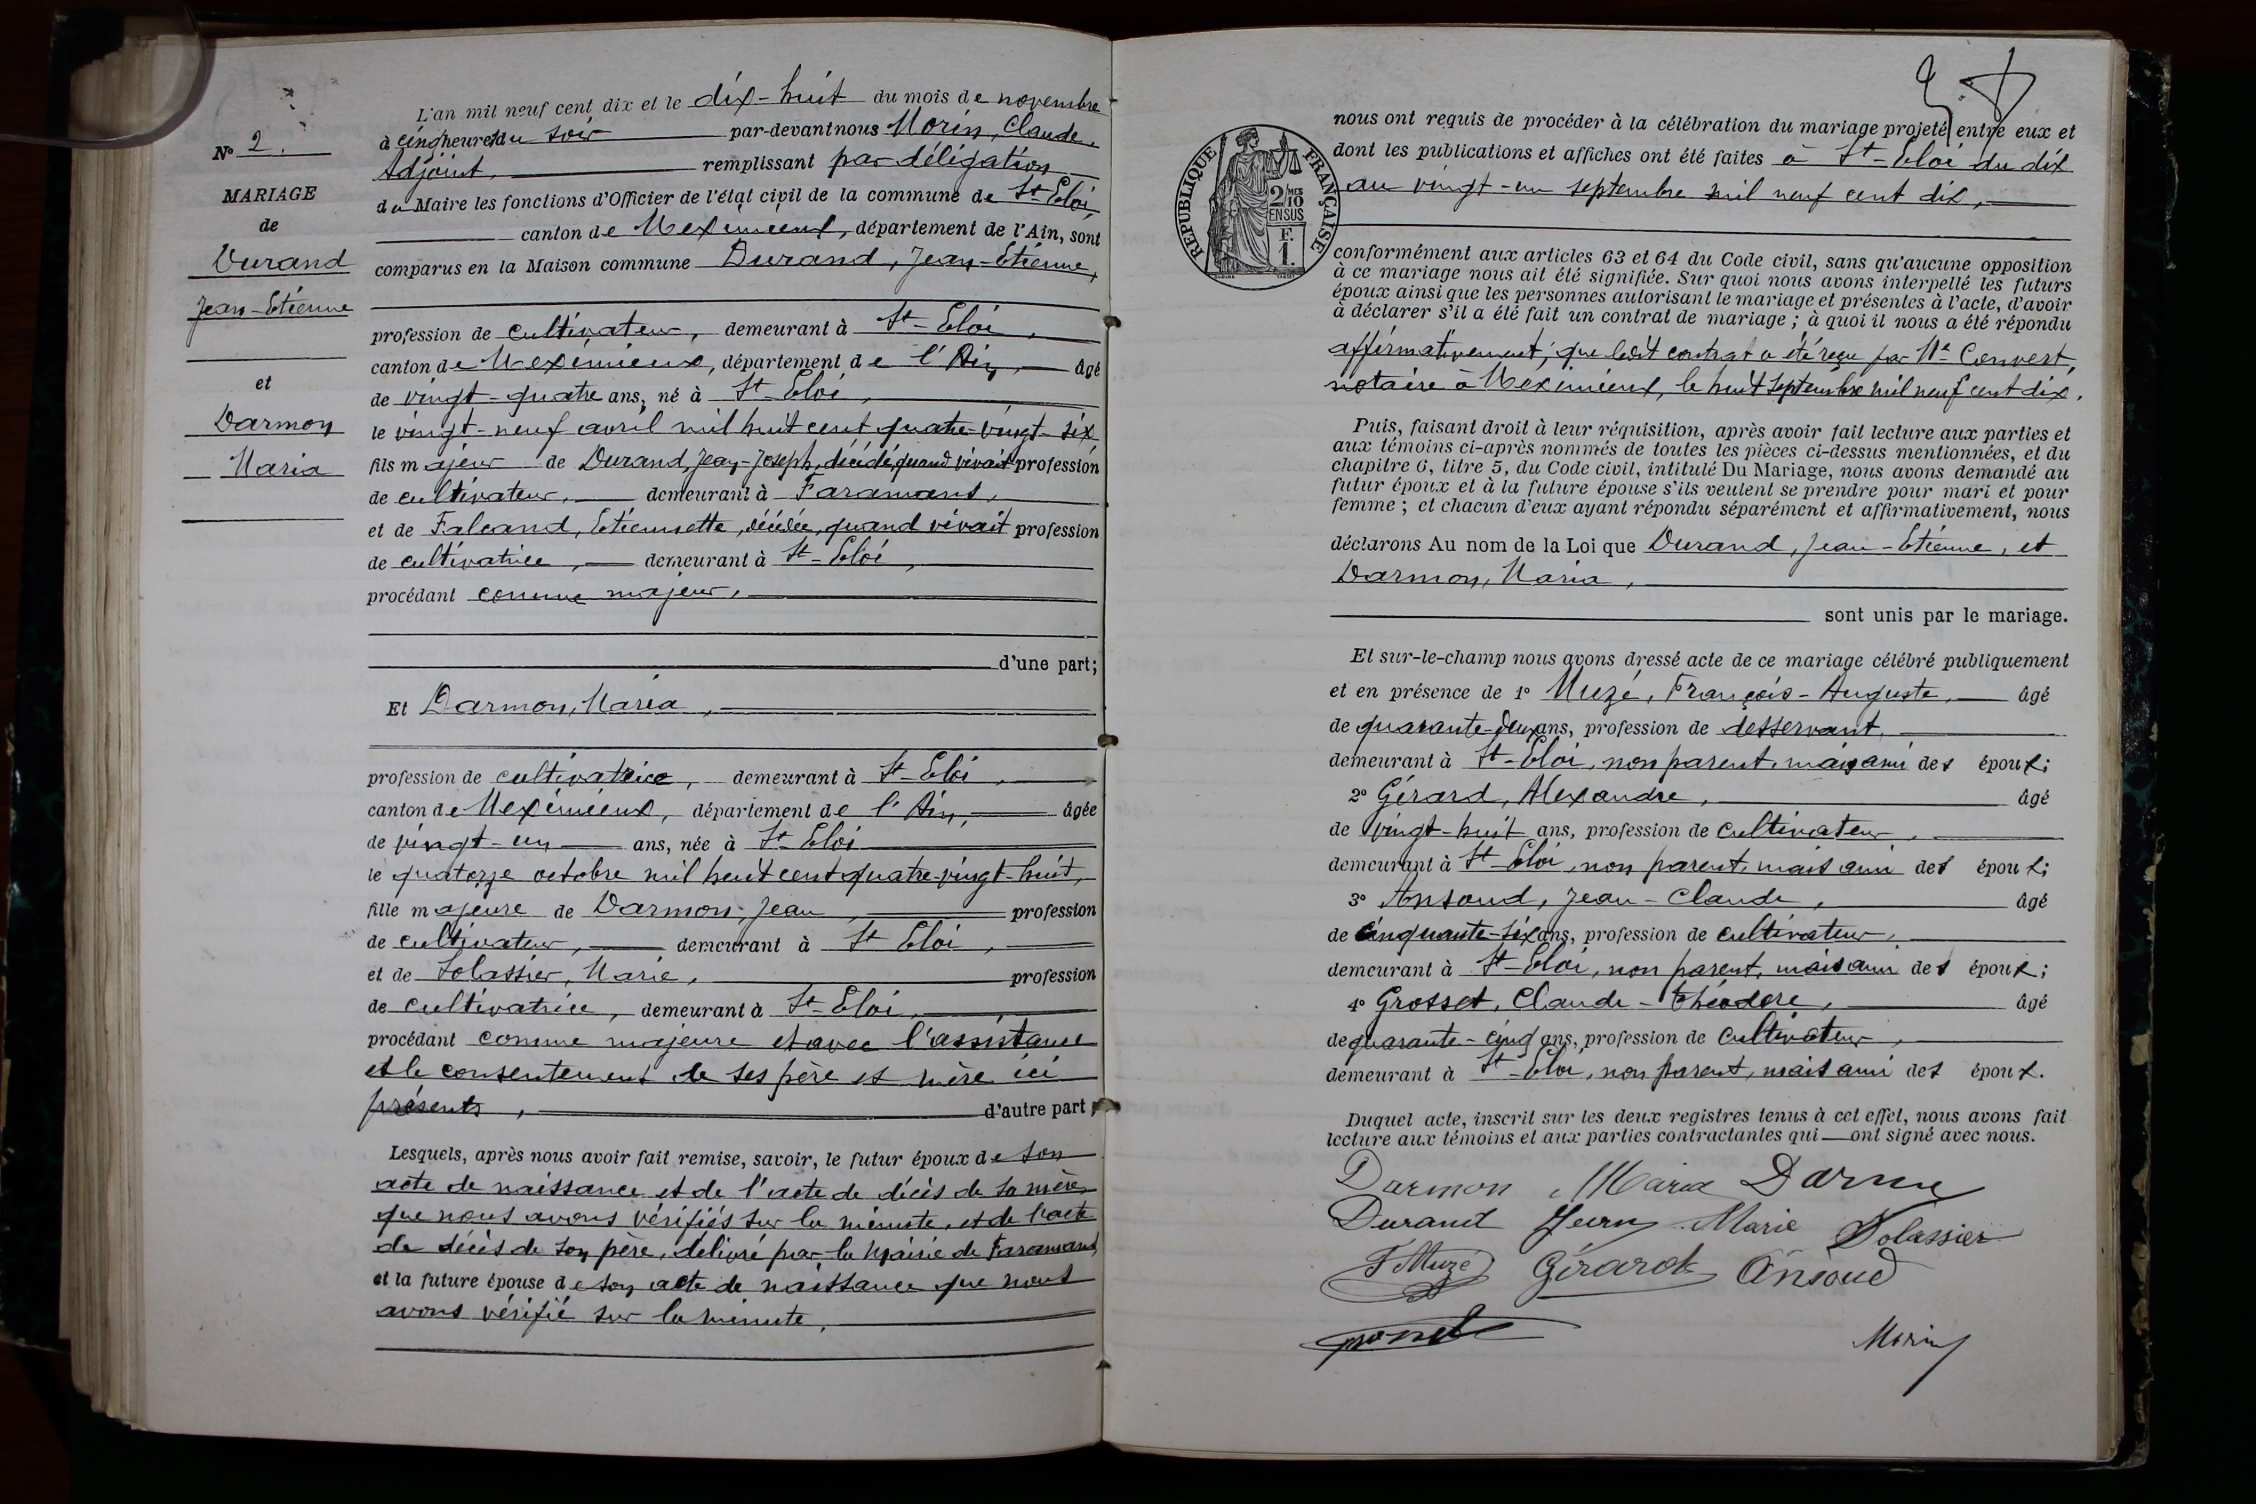 L'an mil neuf cent dix et le dix-huit du mois de novembre
à cinq heures du soir par-devant nous Morin, Claude,
Adjoint, remplissant par déligation
du Maire les fonctions d'Officier de l'état civil de la commune de St-Eloi,
canton de Meximieux, département de l'Ain, sont
comparus en la Maison commune Durand, Jean-Etienne,
profession de cultivateur, demeurant à St-Eloi,
canton de Meximieux, département de l'Ain, âgé
de vingt-quatre ans, né à St-Eloi,
le vingt-neuf avril mil huit cent quatre-vingt-six
fils majeur de Durand, Jean-Joseph, décédé, quand vivait profession
de cultivateur, demeurant à Faramans,
et de Falcand, Etiennette, décédée, quand vivait profession
de cultivatrice, demeurant à St-Eloi,
procédant comme majeur,
d'une part;
Et Darmon, Maria,
profession de cultivatrice, demeurant à St-Eloi,
canton de Meximieux, département de l'Ain, âgée
de vingt-un ans, née à St-Eloi
le quatorze octobre mil huit cent quatre-vingt-huit,
fille majeure de Darmon, Jean profession
de cultivateur, demeurant à St Eloi,
et de Solassier, Marie, profession
de cultivatrice, demeurant à St-Eloi,
procédant comme majeure et avec l'assistance
et le consentement de ses père et mère ici
présents, d'autre part;
Lesquels, après nous avoir fait remise, savoir, le futur époux de son
acte de naissance et de l'acte de décès de sa mère,
que nous avons vérifiés sur la minute, et de l'acte
de décès de son père, délivré par la Mairie de Faramans,
et la future épouse de son acte de naissance que nous
avons vérifié sur la minute,
No 2.
MARIAGE
de
Durand
Jean-Etienne
et
Darmon
Maria
nous ont requis de procéder à la célébration du mariage projeté entre eux et
dont les publications et affiches ont été faites à St-Eloi du dix
au vingt-un septembre mil neuf cent dix,
REPUBLIQUE FRANÇAISE
2 MES
10
EN SUS
F.
1.
conformément aux articles 63 et 64 du Code civil, sans qu'aucune opposition
à ce mariage nous ait été signifiée. Sur quoi nous avons interpellé les futurs
époux ainsi que les personnes autorisant le mariage et présentes à l'acte, d'avoir
à déclarer s'il a été fait un contrat de mariage; à quoi il nous a été répondu
affirmativement; que ledit contrat a été reçu par Me Convert,
notaire à Meximieux, le huit septembre mil neuf cent dix.
Puis, faisant droit à leur réquisition, après avoir fait lecture aux parties et
aux témoins ci-après nommés de toutes les pièces ci-dessus mentionnées, et du
chapitre 6, titre 5, du Code civil, intitulé Du Mariage, nous avons demandé au
futur époux et à la future épouse s'ils veulent se prendre pour mari et pour
femme; et chacun d'eux ayant répondu séparément et affirmativement, nous
déclarons Au nom de la Loi que Durand, Jean-Etienne, et
Darmon, Maria,
sont unis par le mariage.
Et sur-le-champ nous avons dressé acte de ce mariage célébré publiquement
et en présence de 1° Muzé, François-Auguste, âgé
de quarante-deux ans, profession de desservant,
demeurant à St-Eloi, non parent, mais ami des époux;
2° Gérard, Alexandre, âgé
de vingt-huit ans, profession de cultivateur,
demeurant à St-Eloi, non parent, mais ami des époux;
3° Ansoud, Jean-Claude, âgé
de cinquante-six ans, profession de cultivateur,
demeurant à St-Eloi, non parent, mais ami des époux;
4° Grosset, Claude-Théodore, âgé
de quarante-cinq ans, profession de cultivateur,
demeurant à St-Eloi, non parent, mais ami des époux.
Duquel acte, inscrit sur les deux registres tenus à cet effet, nous avons fait
lecture aux témoins et aux parties contractantes qui ont signé avec nous.
Darmon Maria
Durand Jean Marie Solassier
F Muzé Girard Ansoud
Morin